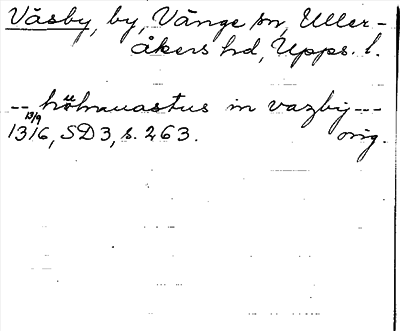 Väsby, by, Vänge sn, Uller-
åkers hd, Upps. l.
-- höhnuastus in vazby ---
13/9
1316, SD3, s. 263. orig.